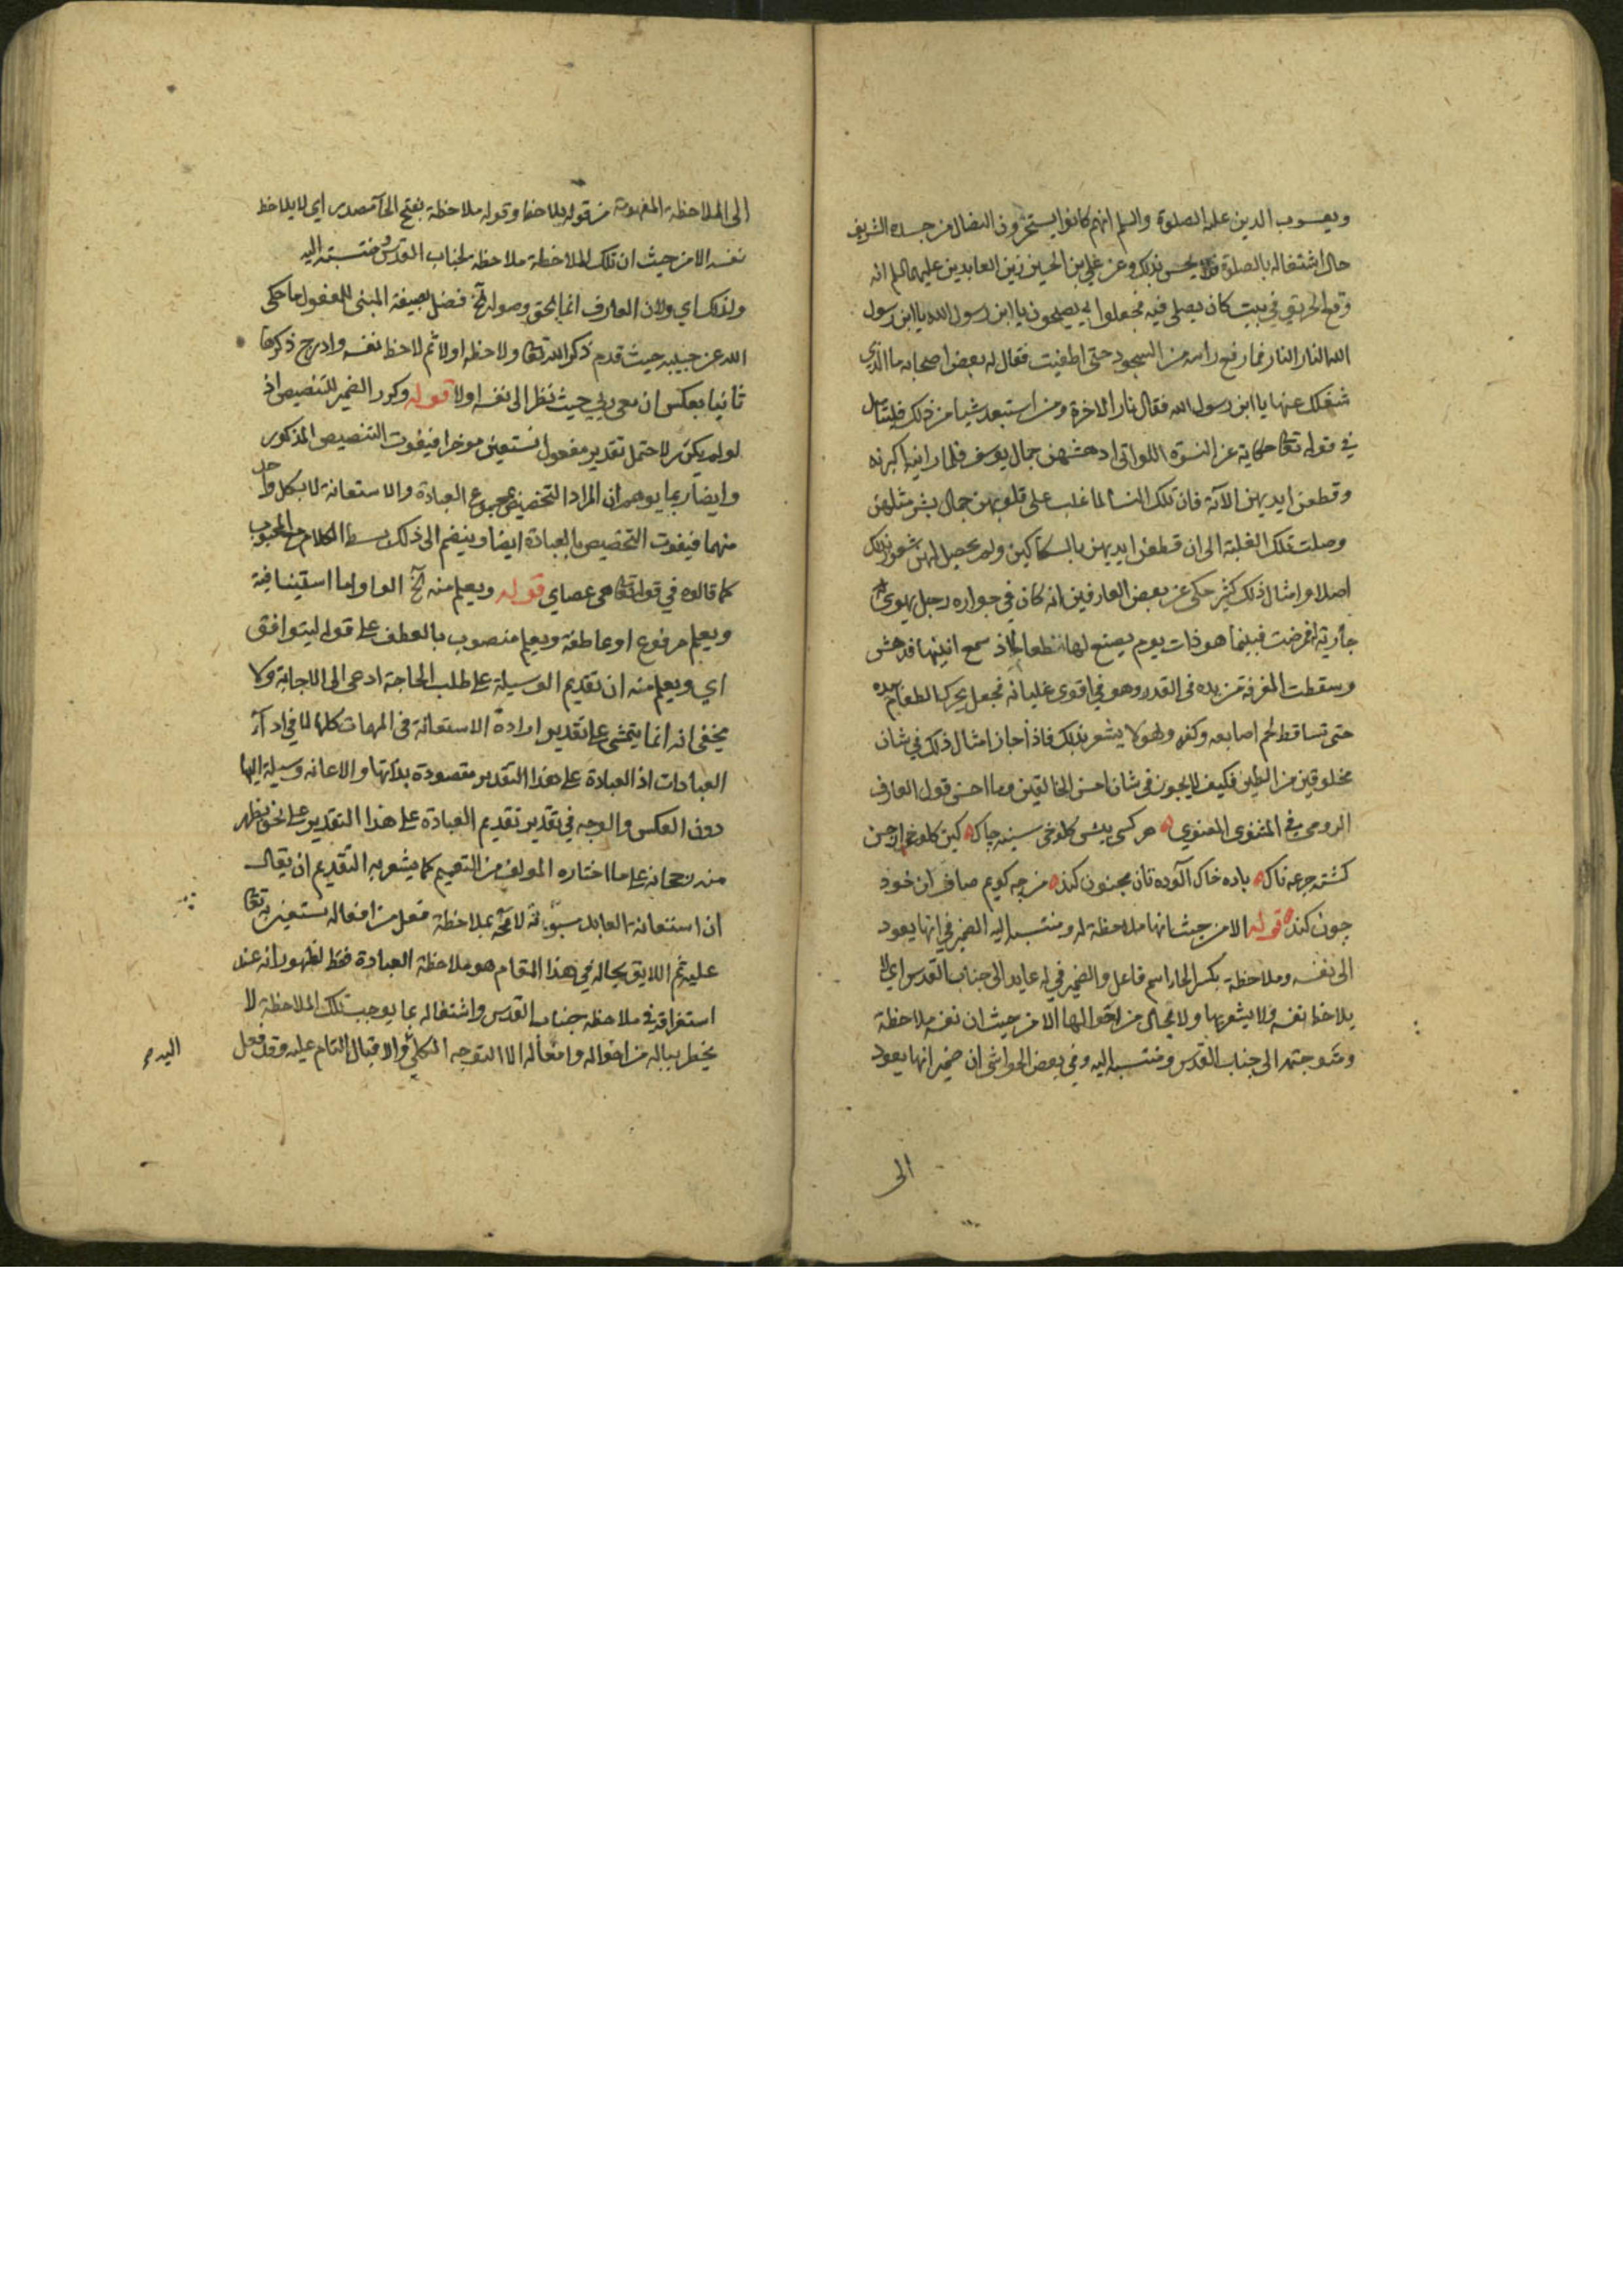 ويعسوب الدين عليه الصلوة والسلم انهم كانوا يستخرجون النصال من جسده الشريف
حال اشتغاله بالصلوة فلا يحس بذلك وعن علي بن الحسين زين العابدين عليهما السلم انه
وقع الحريق في بيت كان يصلى فيه فجعلوا يصيحون يا ابن رسول الله يا ابن رسول
الله النار النار فما رفع راسه من السجود حتى اطفيت فقال له بعض اصحابه ما الذي
شغلك عنها يا ابن رسول الله فقال نار الاخرة ومن استبعد شيا من ذلك فليتامل
في قوله تعالى حكاية عن النسوة اللواتى ادهشهن جمال يوسف فلما راينه اكبرنه
وقطعن ايديهن الآية فان تلك النسا لما غلب على قلوبهن جمال بشر مثلهن
وصلت تلك الغلبة الى ان قطعن ايديهن بالسكاكين ولم يحصل لهن شعور بذلك
اصلا وامثال ذلك كثير حكى عن بعض العارفين انه كان في جواره رجل يهوى
جارية فمرضت فبينما هو ذات يوم يصنع لها طعاما اذ سمع انينها فدهش
وسقطت المغرفة من يده فى القدر وهو في اقوى غليانه فجعل يحرك الطعام بيده
حتى تساقط لحم اصابعه وكفه وهو لا يشعر بذلك فاذا جاز امثال ذلك في شان
مخلوقين من الطين فكيف لا يجوز في شان احسن الخالقين وما احسن قول العارف
الرومي في المثنوى المعنوي هر كسى پيش كلوخى سينه چاك كين كلوخ از حسن
كشته جرعه ناك باده خاك آلوده تان مجنون كند من چه كويم صاف ان خود
چون كند قوله الا من حيث انها ملاحظة له ومنتسبة اليه الضمير في انها يعود
الى نفسه وملاحظة بكسر الحا اسم فاعل والضمير في له عايد الى جناب القدس اي لا
يلاحظ نفسه ولا يشعر بها ولا بحال من احوالها الا من حيث ان نفسه ملاحظة
ومتوجهة الى جناب القدس ومنتسبة اليه وفي بعض الحواشى ان ضمير انها يعود
الى
الى الملاحظة المفهومة من قوله يلاحظ وقوله ملاحظة بفتح الحا مصدر اي لا يلاحظ
نفسه الا من حيث ان تلك الملاحظة ملاحظة لجناب القدس ومنتسبة اليه
ولذلك اي ولان العارف انما يحق وصوله الخ فضل بصيغة المبنى للمفعول ما حكى
الله عن حبيبه حيث قدم ذكر الله تعالى ولاحظه اولا ثم لاحظ نفسه وادرج ذكرها
ثانيا بعكس ان معى ربي حيث نظر الى نفسه اولا قوله وكرر الضمير للتنصيص اذ
لو لم يكرر لاحتمل تقدير مفعول نستعين موخرا فيفوت التنصيص المذكور
وايضا ربما يوهم ان المراد التخصيص بمجموع العبادة والاستعانة لا بكل واحد
منهما فيفوت التخصيص بالعبادة ايضا وينضم الى ذلك بسط الكلام مع المحبوب
كما قالوه في قوله تعالى هى عصاي قوله ويعلم منه الخ الواو اما استينافية
ويعلم مرفوع او عاطفة ويعلم منصوب بالعطف على قوله ليتوافق
اي ويعلم منه ان تقديم الوسيلة على طلب الحاجة ادعى الى الاجابة ولا
يخفى انه انما يتمشى على تقدير ارادة الاستعانة فى المهمات كلها لا في ادآء
العبادات اذ العبادة على هذا التقدير مقصودة بذاتها والاعانه وسيلة اليها
دون العكس والوجه في تقدير تقديم العبادة على هذا التقدير على نحو يظهر
منه رجحانه على ما اختاره المولف من التعميم كما يشعر به التقديم ان يقال
ان استعانة العابد بملاحظة فعل من افعاله يستعين به تعالى
عليه ثم اللايق بحاله في هذا المقام هو ملاحظة العبادة فقط لظهور انه عند
استغراقه في ملاحظة جناب القدس واشتغاله بما يوجب تلك الملاحظة لا
يخطر بباله من احواله وافعاله الا التوجه الكلي والاقبال التام عليه وقد فعل